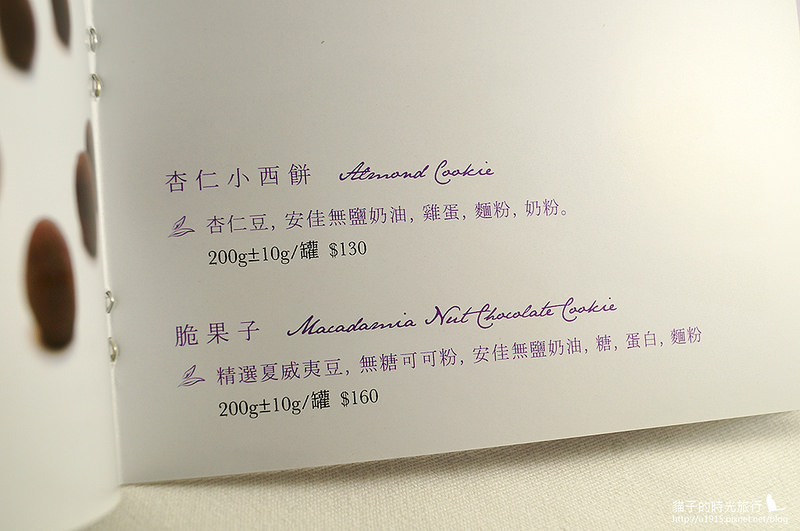 杏仁小西餅 Almond Cookie
杏仁豆, 安佳無鹽奶油, 雞蛋, 麵粉, 奶粉。
200g±10g/罐 $130
脆果子 Macadamia Nut Chocolate Cookie
精選夏威夷豆, 無糖可可粉, 安佳無鹽奶油, 糖, 蛋白, 麵粉
200g±10g/罐 $160
貓子的時光旅行